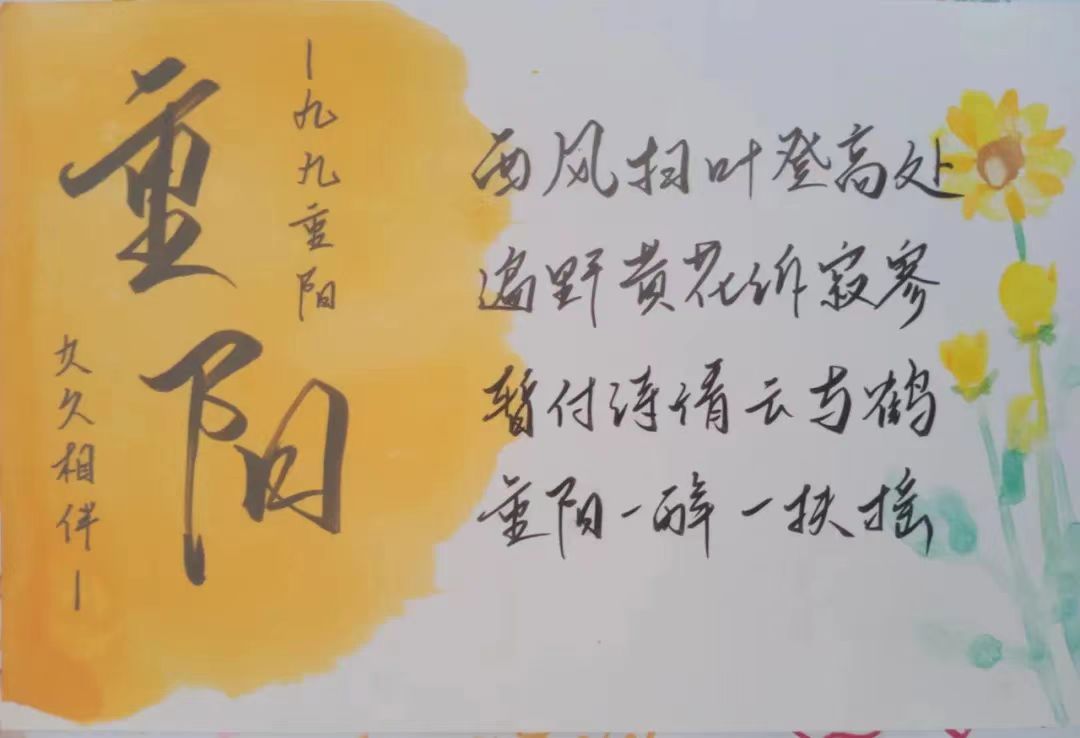 重阳
九九重阳
久久相伴
西风扫叶登高处
遍野黄花诉寂寥
暂付诗情云与鹤
重阳一醉一扶摇